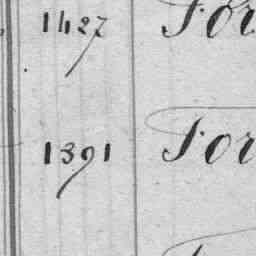 1427 For
1391 For